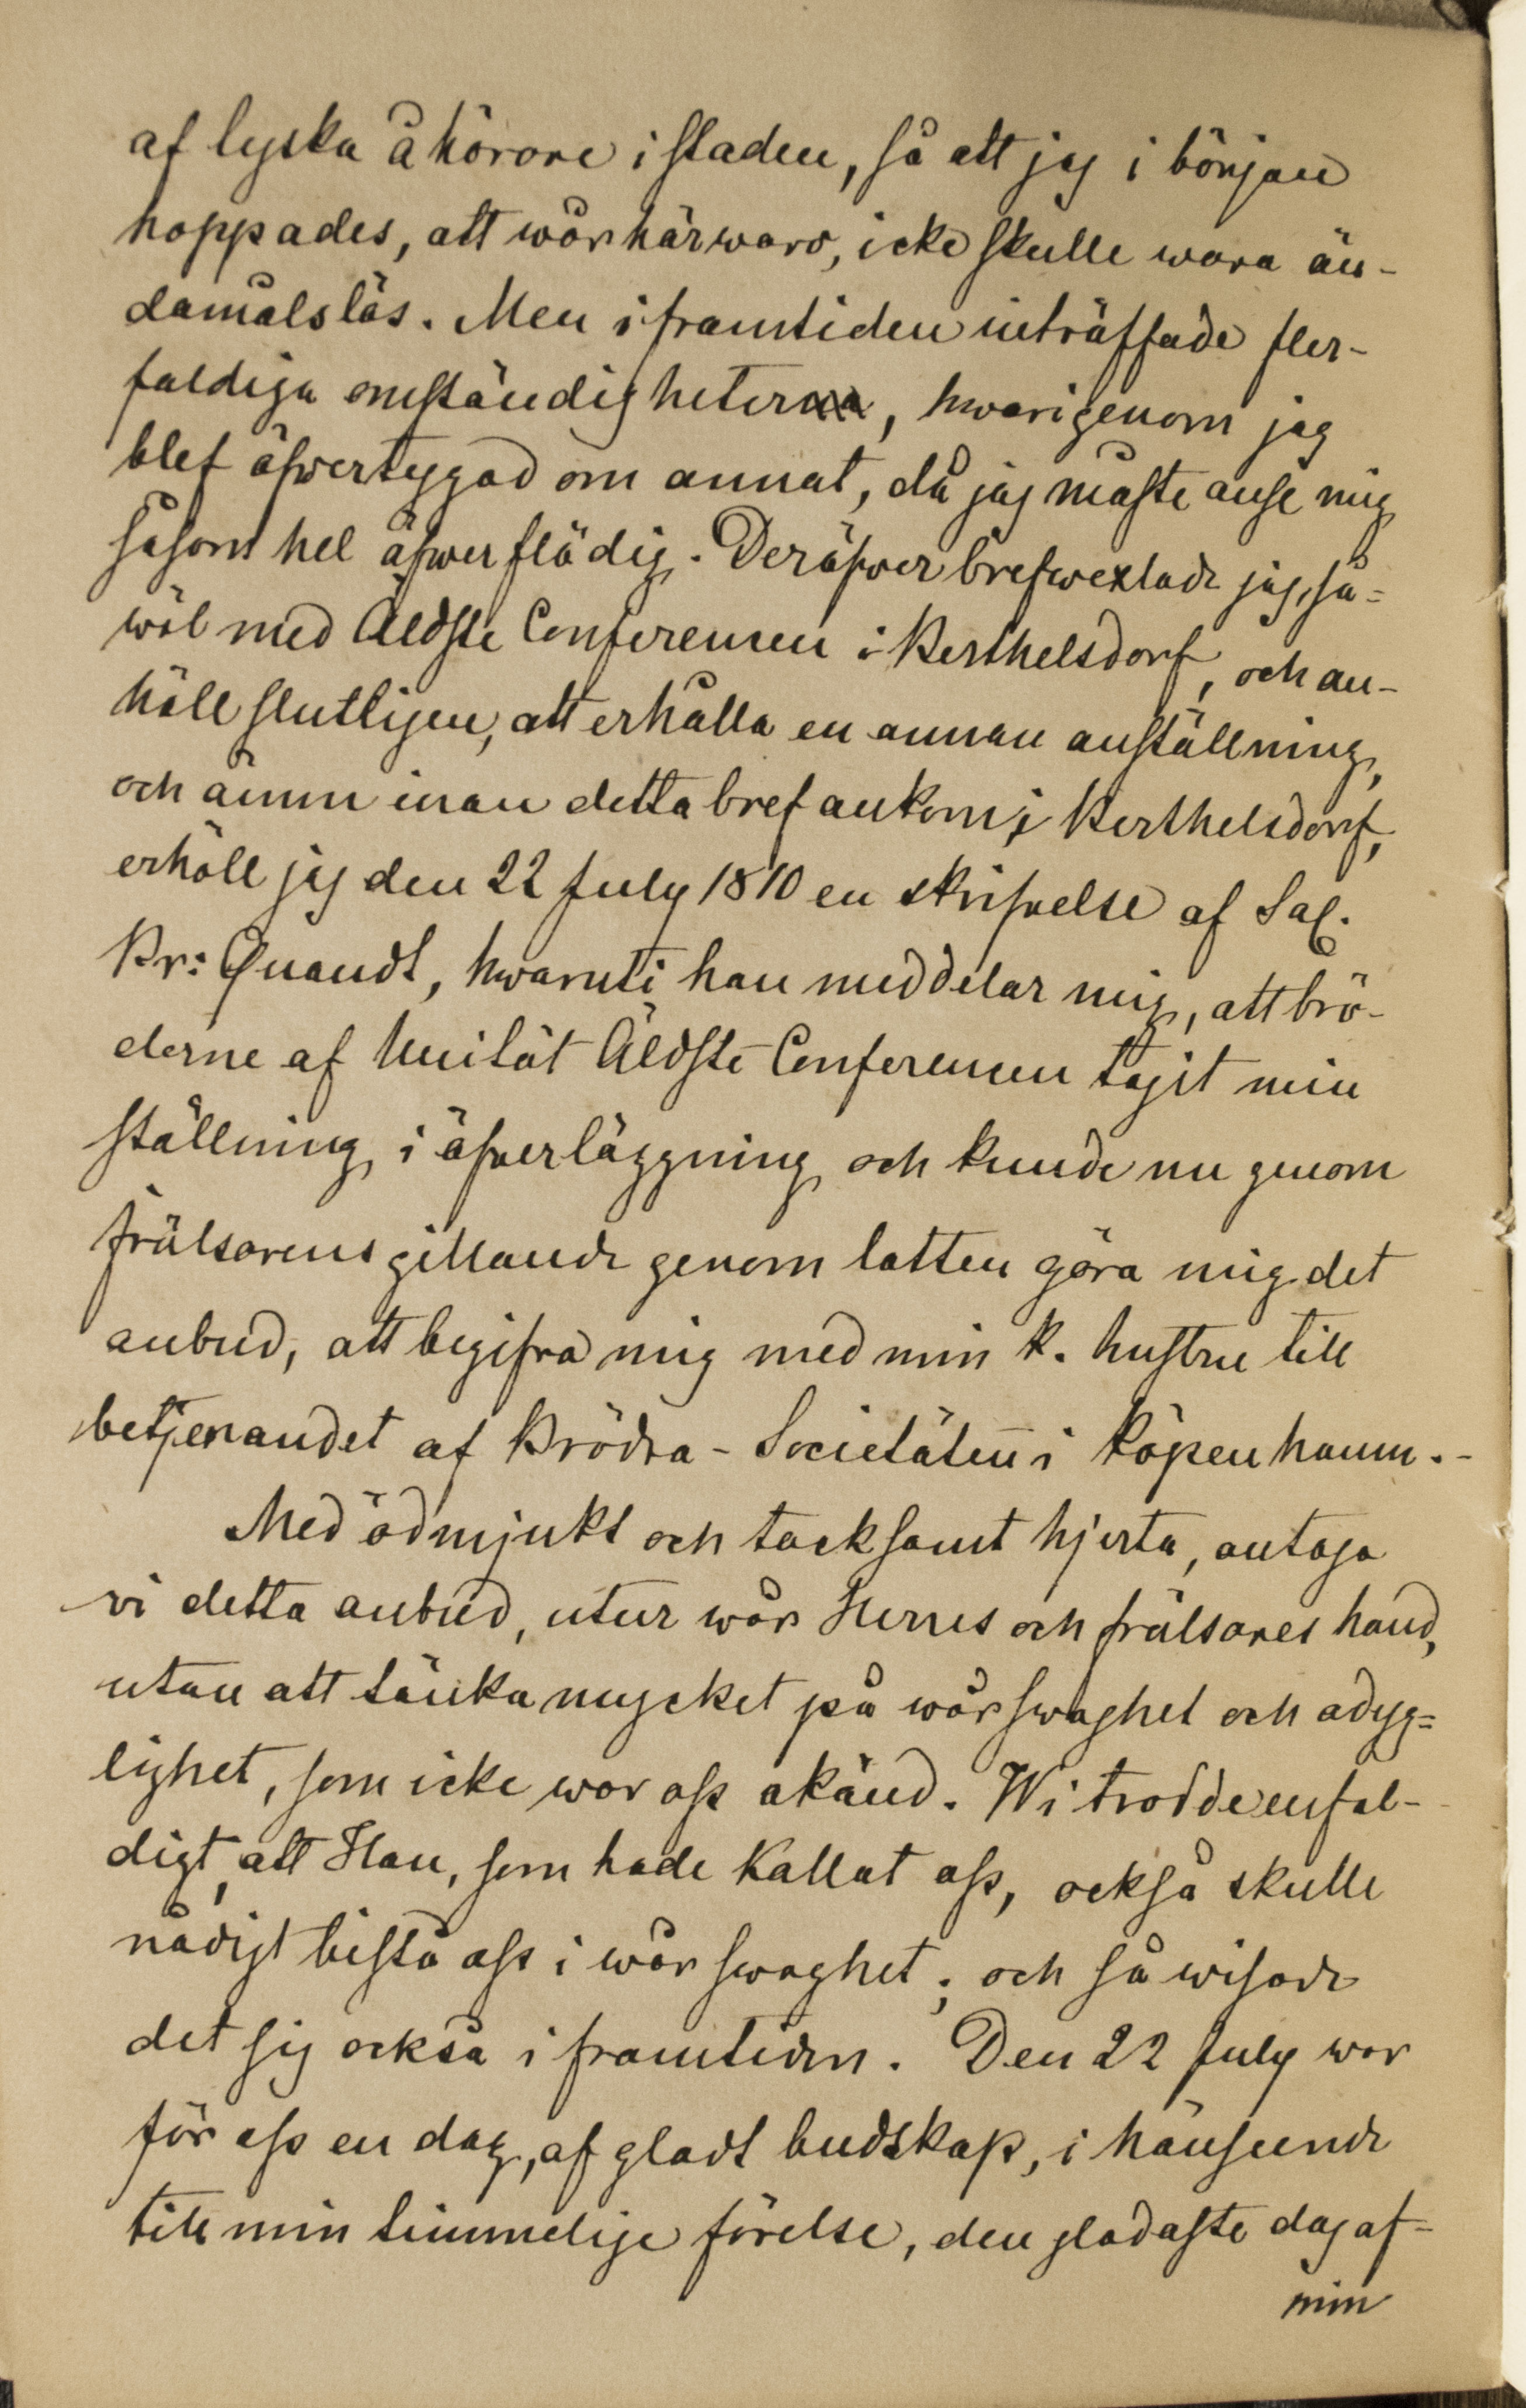 af tyska åhörare i staden, så att jag i början
hoppades, att wår härwaro, icke skulle wara än-
damålslös. Men i framtiden inträffade fler-
faldiga omständigheter, hwarigenom jag
blef öfwertygad om annat, då jag måste anse mig
såsom hel öfwerflödig. Deröfwer brefwexlade jag, så-
wäl med Äldste Conferensen i Berthelsdorf, och an-
höll slutligen, att erhålla en annan anställning,
och ännu innan detta bref ankom i Berthelsdorf,
erhöll jag den 22 July 1810 en skrifvelse af Sal.
Br: Quandt, hwaruti han meddelar mig, att brö-
derne af Unität Äldste Conferensen tagit min
ställning i öfverläggning och kunde nu genom
frälsarens gillande genom lotten göra mig det
anbud, att begifva mig med min k. hustru till
betjenandet af Brödra-Societäten i Köpenhamn.-
Med ödmjukt och tacksamt hjerta, antaga
vi detta anbud, utur wår Herres och frälsares hand,
utan att tänka mycket på wår swaghet och odug-
lighet, som icke war oss okänd. Wi trodde enfal-
digt, att Han, som hade kallat oss, också skulle
nådigt bistå oss i wår swaghet; och så wisade
det sig också i framtiden. Den 22 July war
för oss en dag, af gladt budskap, i hänseende
till min timmelige förelse, den gladaste dag af
min